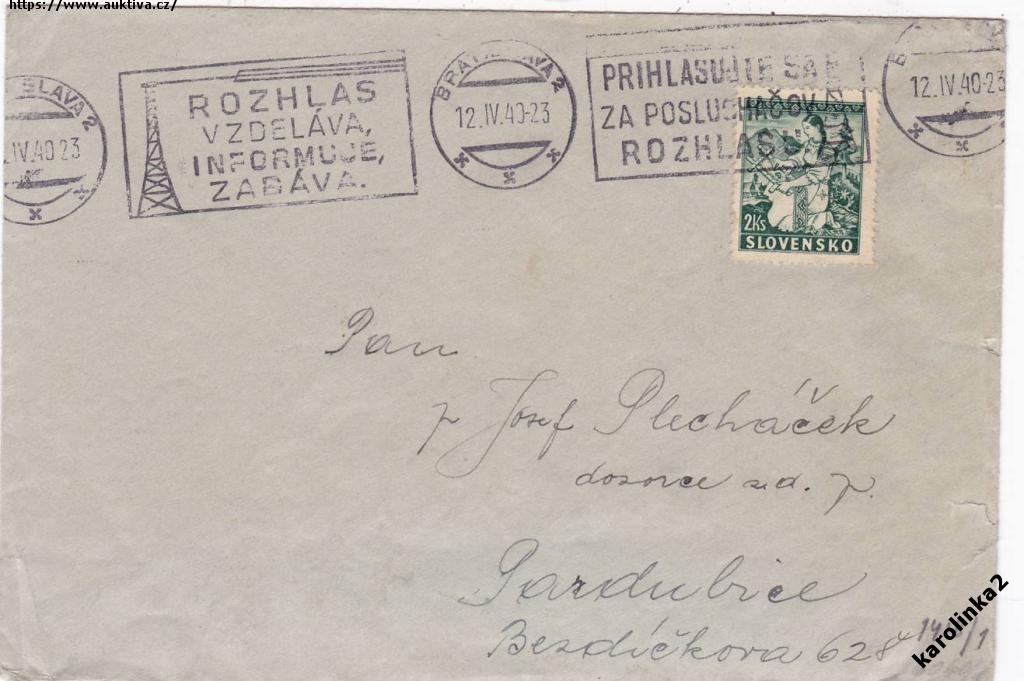 https://www.auktiva.cz/
SLAVA 2
.IV.40 23
ROZHLAS
VZDELÁVA,
INFORMUJE,
ZABÁVA.
BRATISLAVA 2
12.IV.40-23
PRIHLASUJTE SA
ZA POSLUCHAČOV
ROZHLASU
B
12.IV.40-23
2Ks
SLOVENSKO
Pan
p Josef Plecháček
dozorce z.d. p.
Pardubice
Bezdíčkova 628
karolinka2